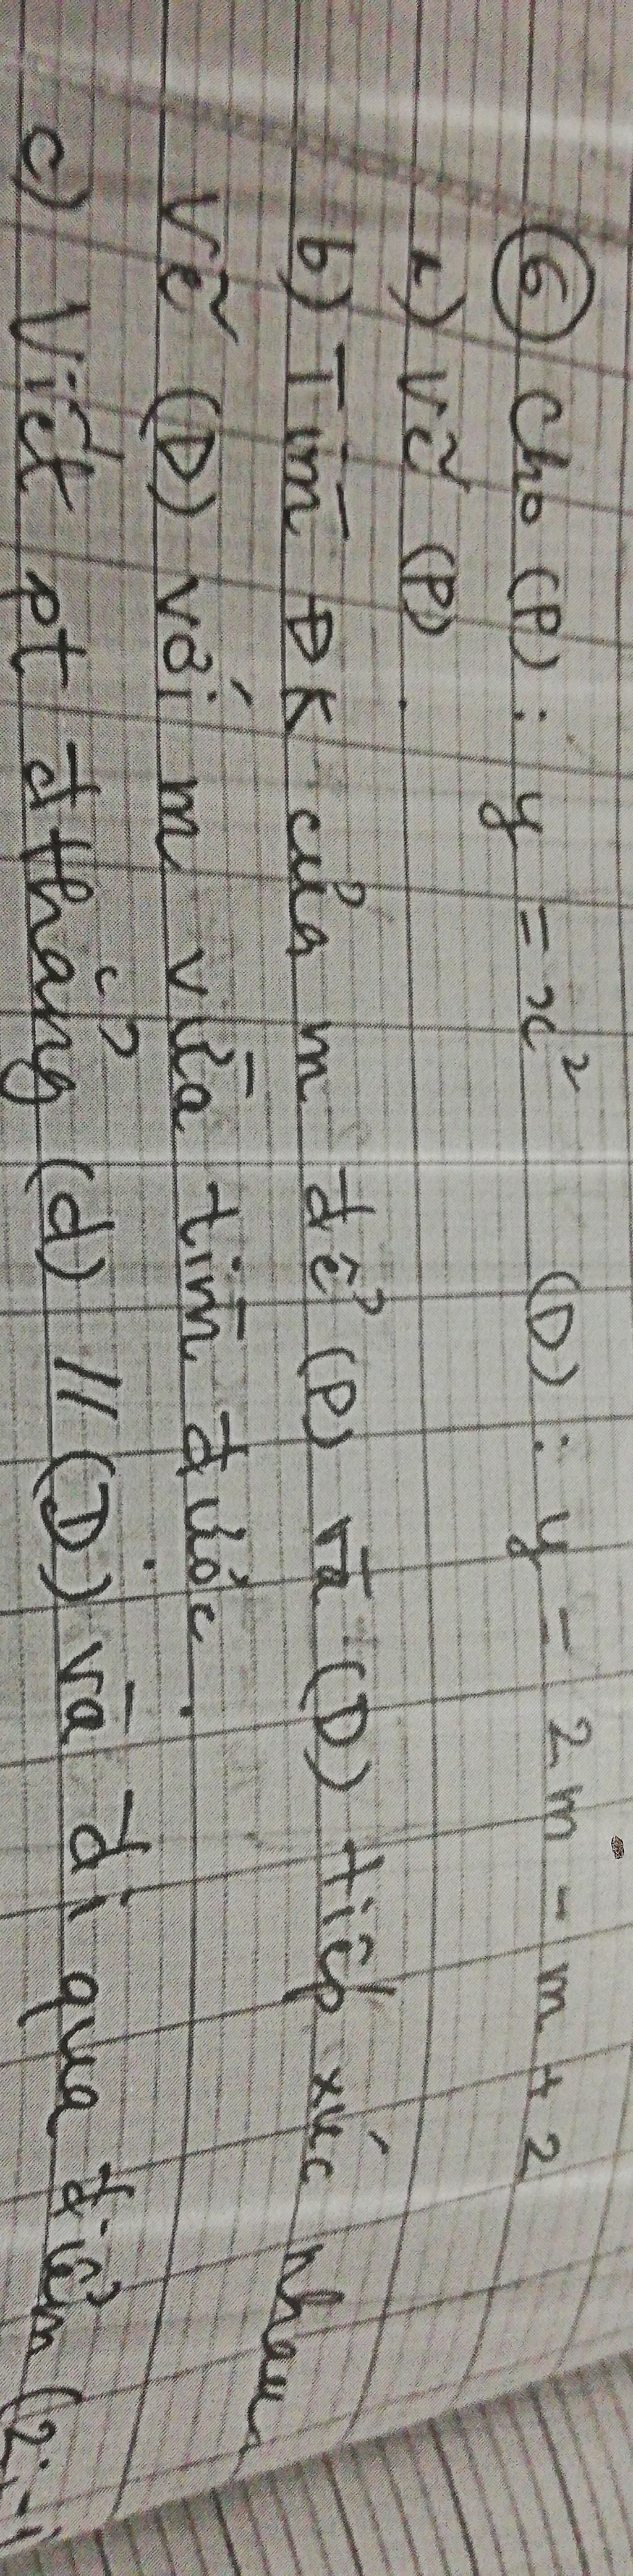 ⑥ Cho (P): y = x² (D): y = 2m - m + 2
a) Vẽ (P).
b) Tìm ĐK của m để (P) và (D) tiếp xúc nhau.
Vẽ (D) với m vừa tìm được.
c) Viết pt đthẳng (d) // (D) và đi qua điểm (2; -1